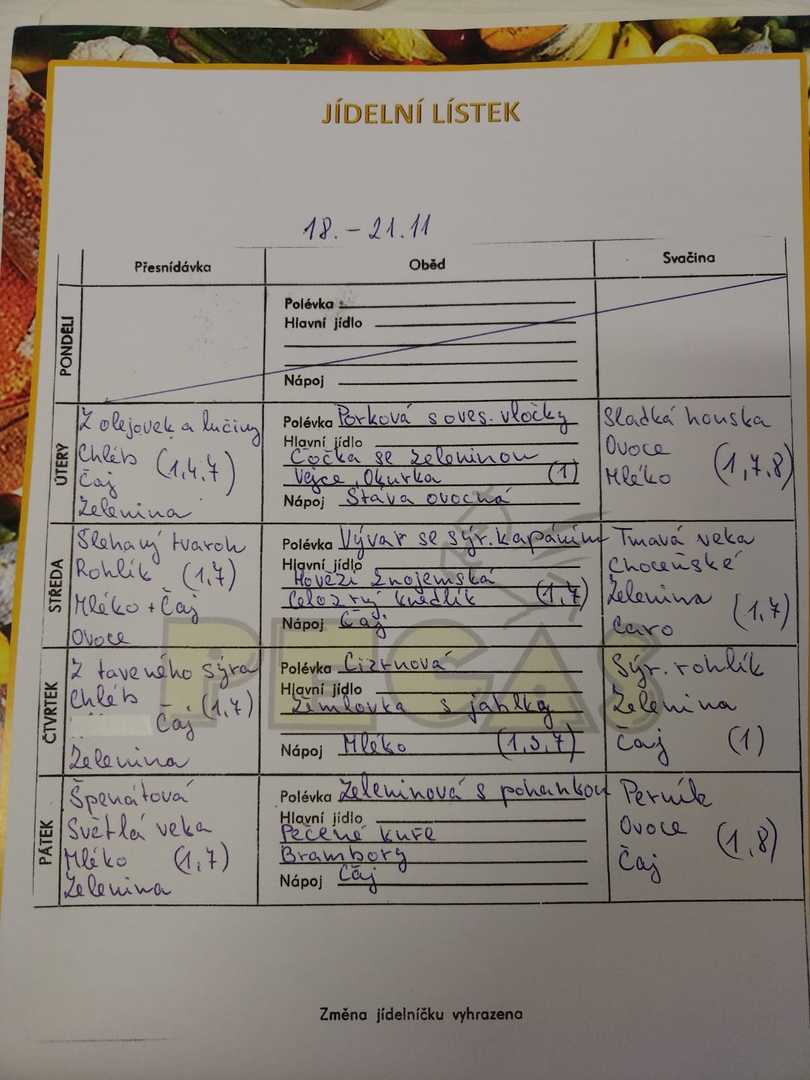 JÍDELNÍ LÍSTEK
18. - 21.11
Přesnídávka Oběd Svačina
PONDĚLÍ
Polévka
Hlavní jídlo
Nápoj
ÚTERÝ
Z olejovek a lučiny
Chléb (1,4,7)
Čaj
Zelenina
Polévka Pórková s oves. vločky
Hlavní jídlo
Čočka se zeleninou
Vejce, Okurka (1)
Nápoj Šťáva ovocná
Sladká houska
Ovoce
Mléko (1,7,8)
STŘEDA
Šlehaný tvaroh
Rohlík (1,7)
Mléko + Čaj
Ovoce
Polévka Vývar se sýr. kapáním
Hlavní jídlo
Hovězí znojemská
Celozrný knedlík (1,7)
Nápoj Čaj
Tmavá veka
Choceňské
Zelenina (1,7)
Caro
ČTVRTEK
Z taveného sýra
Chléb (1,7)
Čaj
Zelenina
Polévka Cizrnová
Hlavní jídlo
Žemlovka s jablky
Nápoj Mléko (1,3,7)
Sýr. rohlík
Zelenina
Čaj (1)
PÁTEK
Špenátová
Světlá veka
Mléko (1,7)
Zelenina
Polévka Zeleninová s pohankou
Hlavní jídlo
Pečené kuře
Brambory
Nápoj Čaj
Perník
Ovoce (1,8)
Čaj
PEGAS
Změna jídelníčku vyhrazena